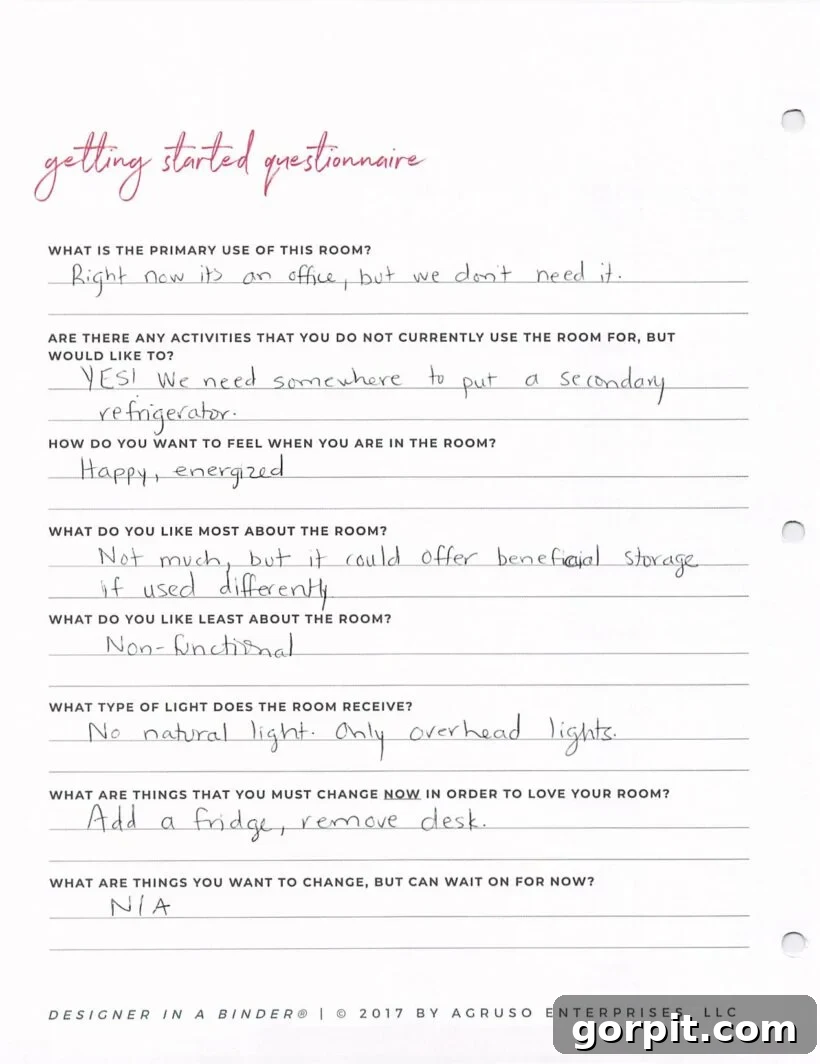 getting started questionnaire
WHAT IS THE PRIMARY USE OF THIS ROOM?
Right now its an office, but we don't need it.
ARE THERE ANY ACTIVITIES THAT YOU DO NOT CURRENTLY USE THE ROOM FOR, BUT
WOULD LIKE TO?
YES! We need somewhere to put a secondary
refrigerator.
HOW DO YOU WANT TO FEEL WHEN YOU ARE IN THE ROOM?
Happy, energized
WHAT DO YOU LIKE MOST ABOUT THE ROOM?
Not much, but it could offer beneficial storage
if used differently
WHAT DO YOU LIKE LEAST ABOUT THE ROOM?
Non-functional
WHAT TYPE OF LIGHT DOES THE ROOM RECEIVE?
No natural light. Only overhead lights.
WHAT ARE THINGS THAT YOU MUST CHANGE NOW IN ORDER TO LOVE YOUR ROOM?
Add a fridge, remove desk.
WHAT ARE THINGS YOU WANT TO CHANGE, BUT CAN WAIT ON FOR NOW?
N/A
DESIGNER IN A BINDER® | © 2017 BY AGRUSO ENTERPRISES, LLC
gorpit.com